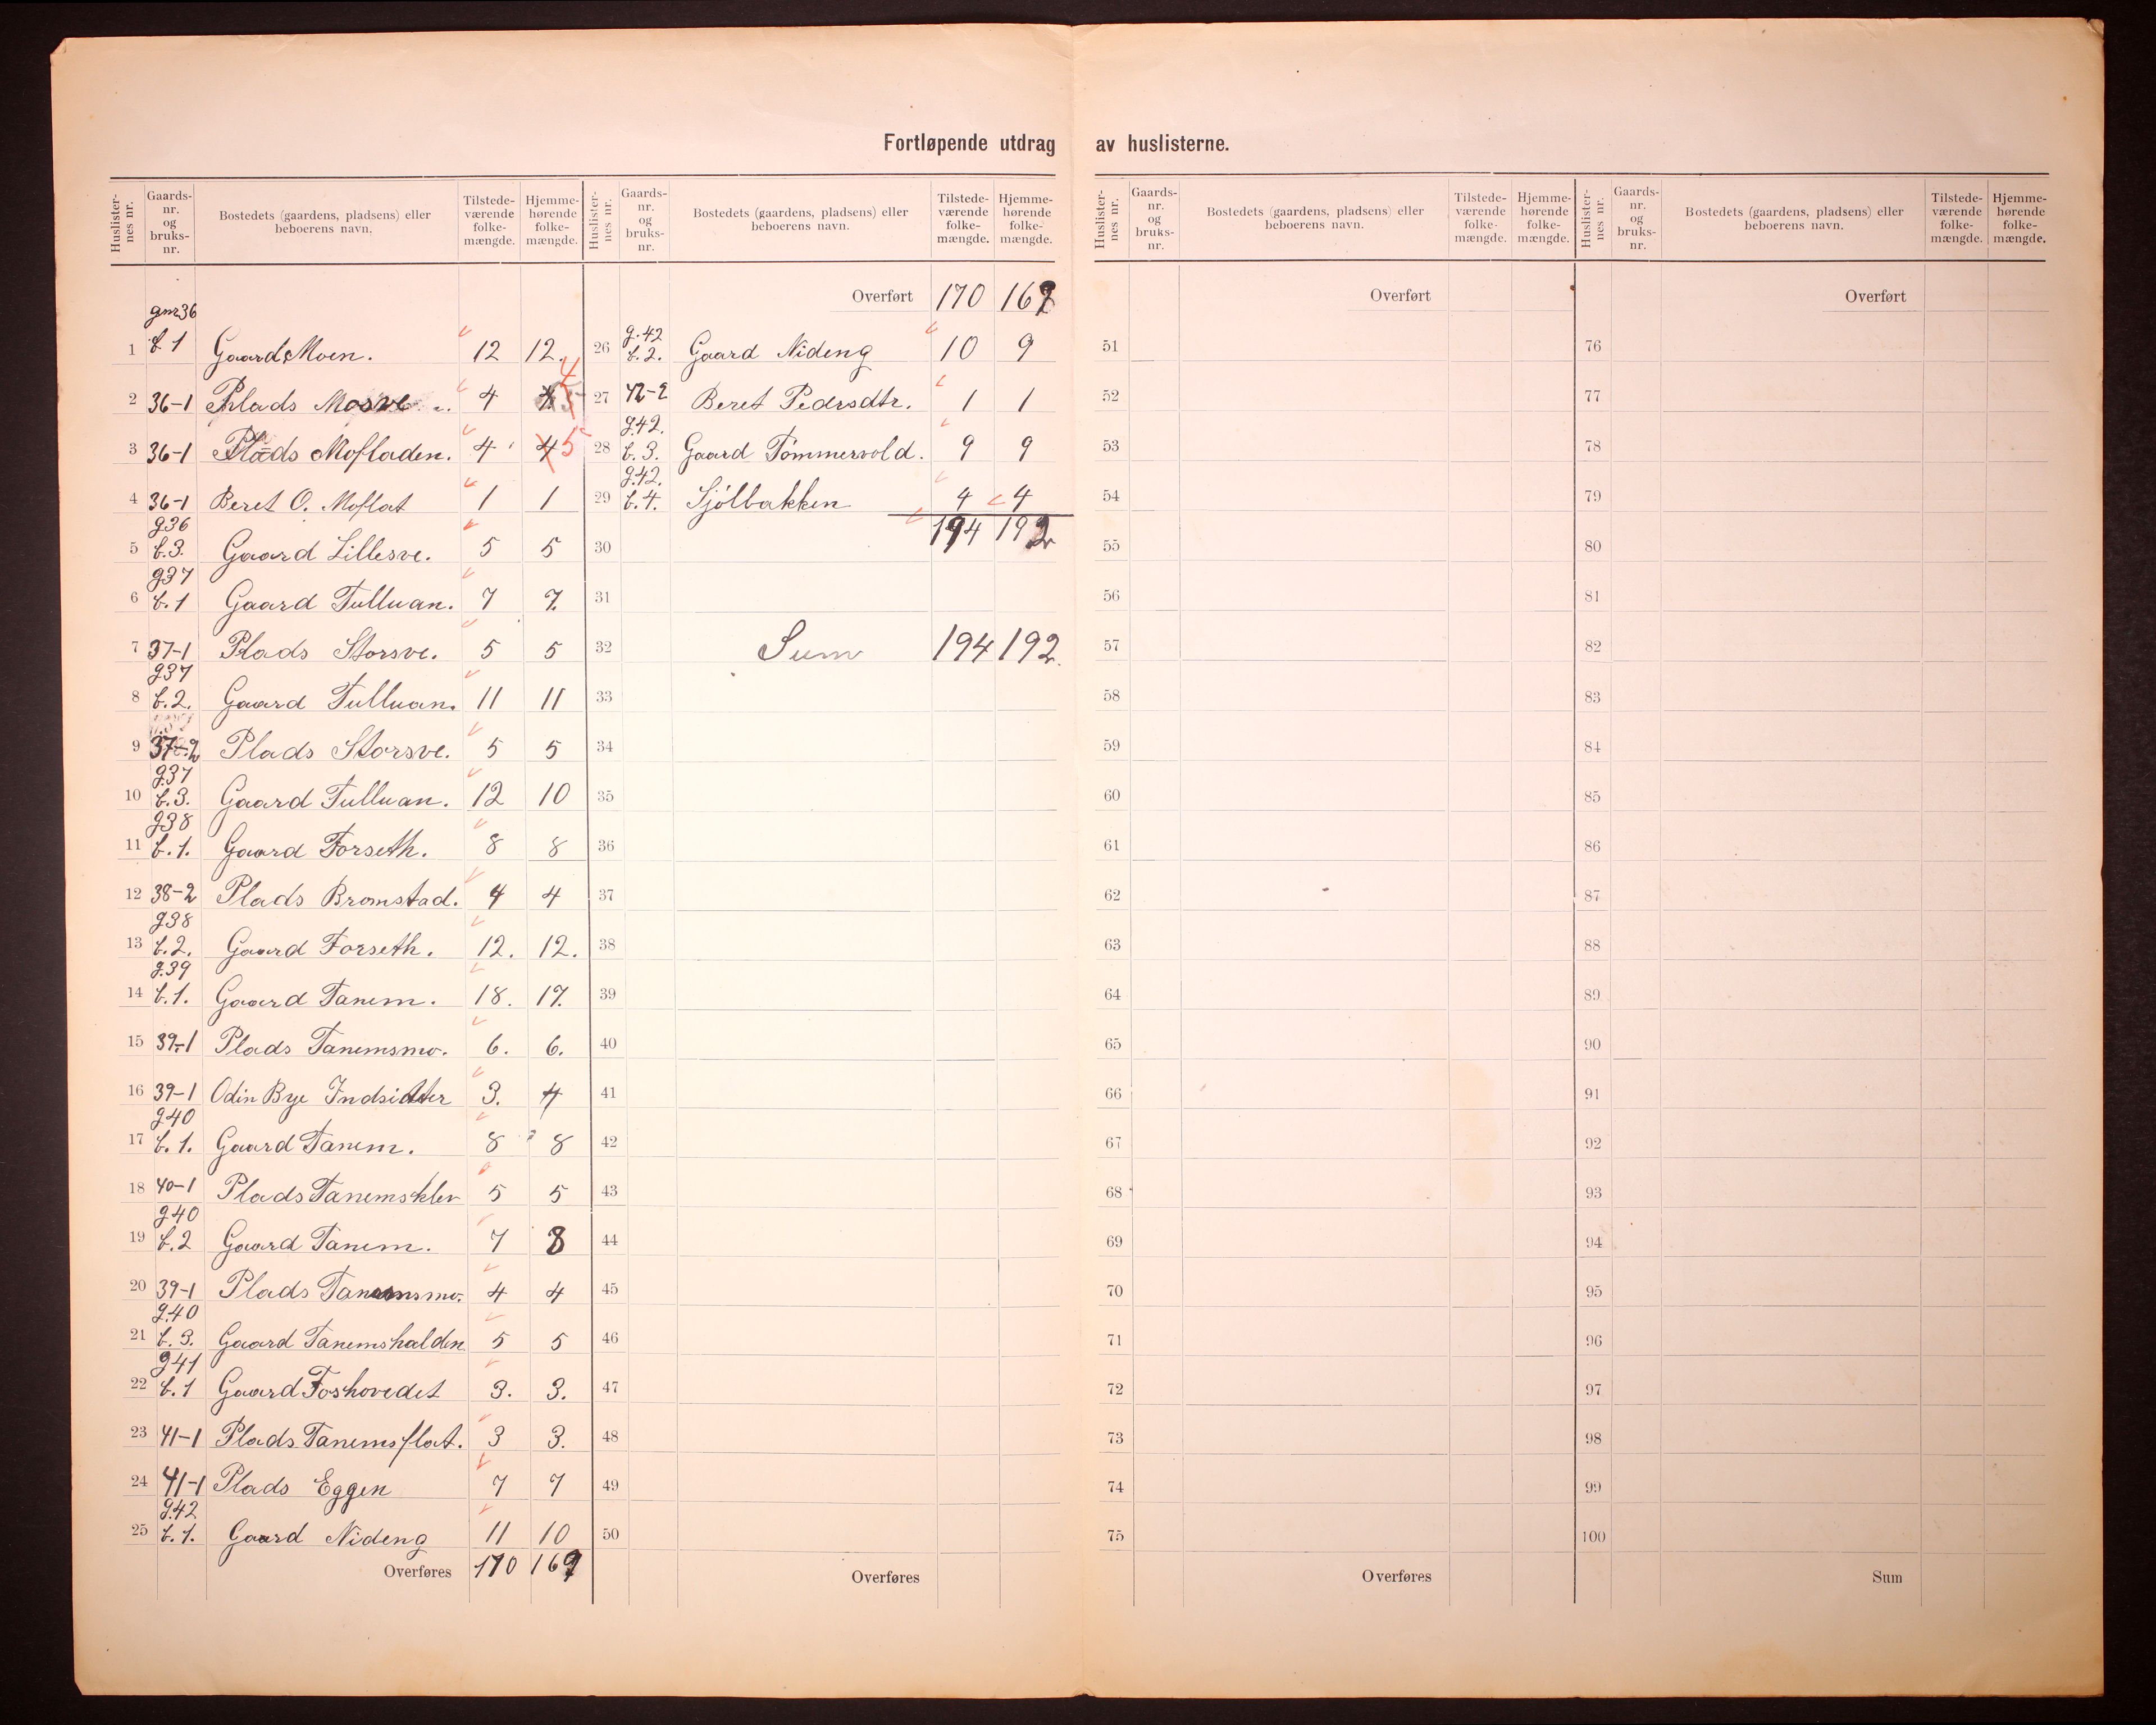 Fortløpende utdrag av huslisterne.
Huslister-nes nr. Gaards-nr. og bruks-nr. Bostedets (gaardens, pladsens) eller beboerens navn. Tilstede-værende folke-mængde. Hjemme-hørende folke-mængde.
gnr 36
1 b 1 Gaard Moen. 12 12.
2 36-1 Plads Mosve 4 4
3 36-1 Plads Mofladen. 4 5
4 36-1 Beret O. Moflat 1 1
g36
5 b.3. Gaard Lillesve. 5 5
g37
6 b.1 Gaard Tulluan. 7 7.
7 37-1 Plads Storsve. 5 5
g37
8 b.2. Gaard Tulluan. 11 11
9 37-2 Plads Storsve. 5 5
g37
10 b.3. Gaard Tulluan. 12 10
g38
11 b.1. Gaard Forseth. 8 8
12 38-2 Plads Bromstad. 4 4
g38
13 b.2. Gaard Forseth. 12. 12.
g.39
14 b.1. Gaard Tanem. 18. 17.
15 39-1 Plads Tanemsmo. 6. 6.
16 39-1 Odin Bye Indsidder 3. 4
g40
17 b.1. Gaard Tanem. 8 8
18 40-1 Plads Tanemsklev 5 5
g40
19 b.2 Gaard Tanem. 7 8
20 39-1 Plads Tanemsmo. 4 4
g.40
21 b.3. Gaard Tanemshalden 5 5
g41
22 b.1 Gaard Foshovedet 3. 3.
23 41-1 Plads Tanemsflat. 3 3.
24 41-1 Plads Eggen 7 7
g.42
25 b.1. Gaard Nideng 11 10
Overføres 170 169
Huslister-nes nr. Gaards-nr. og bruks-nr. Bostedets (gaardens, pladsens) eller beboerens navn. Tilstede-værende folke-mængde. Hjemme-hørende folke-mængde.
Overført 170 169
g.42
26 b.2. Gaard Nideng 10 9
27 42-2 Beret Pedrsdtr. 1 1
g42.
28 b.3. Gaard Tømmervold. 9 9
g.42.
29 b.4. Sjølbakken 4 4
30 194 192
31
32 Sum 194 192.
33
34
35
36
37
38
39
40
41
42
43
44
45
46
47
48
49
50
Overføres
Huslister-nes nr. Gaards-nr. og bruks-nr. Bostedets (gaardens, pladsens) eller beboerens navn. Tilstede-værende folke-mængde. Hjemme-hørende folke-mængde.
Overført
51
52
53
54
55
56
57
58
59
60
61
62
63
64
65
66
67
68
69
70
71
72
73
74
75
Overføres
Huslister-nes nr. Gaards-nr. og bruks-nr. Bostedets (gaardens, pladsens) eller beboerens navn. Tilstede-værende folke-mængde. Hjemme-hørende folke-mængde.
Overført
76
77
78
79
80
81
82
83
84
85
86
87
88
89
90
91
92
93
94
95
96
97
98
99
100
Sum